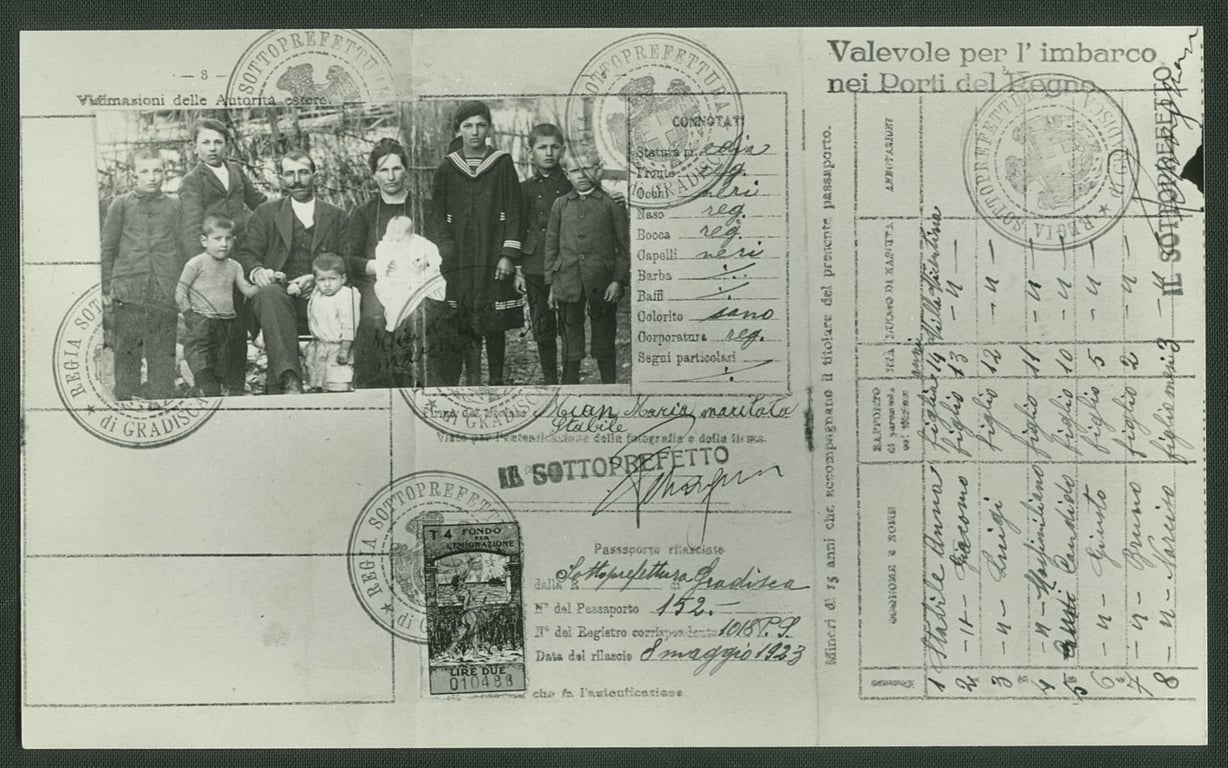 — 8 —
Vidimazioni delle Autorità estere
REGIA SOTTOPREFETTURA
di GRADISCA
CONNOTATI
Statura media
Fronte reg.
Occhi neri
Naso reg.
Bocca reg.
Capelli neri
Barba
Baffi
Colorito sano
Corporatura reg.
Segni particolari
Firma del titolare Mian Maria maritata
Stabile
Visto per l'autenticazione della fotografia e della firma.
IL SOTTOPREFETTO
REGIA SOTTOPREFETTURA
di GRADISCA
T 4 FONDO
PER
L'EMIGRAZIONE
LIRE DUE
010488
Passaporto rilasciato
dalla Sottoprefettura di Gradisca
N° del Passaporto 152.-
N° del Registro corrispondente 1018 P.S.
Data del rilascio 8 maggio 1923
che fa l'autenticazione
Valevole per l' imbarco
nei Porti del Regno
Minori di 15 anni che accompagnano il titolare del presente passaporto.
COGNOME E NOME
RAPPORTO di parentela col titolare
ETÀ
LUOGO DI NASCITA
ANNOTAZIONI
1 Stabile Anna figlia anni 14
2 - " - Giacomo figlio 13 - " -
3 - " - Luigi figlio 12 - " -
4 - " - Massimiliano figlio 11 - " -
5 Candido figlio 10 - " -
6 - " - Giusto figlio 5 - " -
7 - " - Bruno figlio 2 - " -
8 - " - Narciso figlio mesi 3 - " -
IL SOTTOPREFETTO